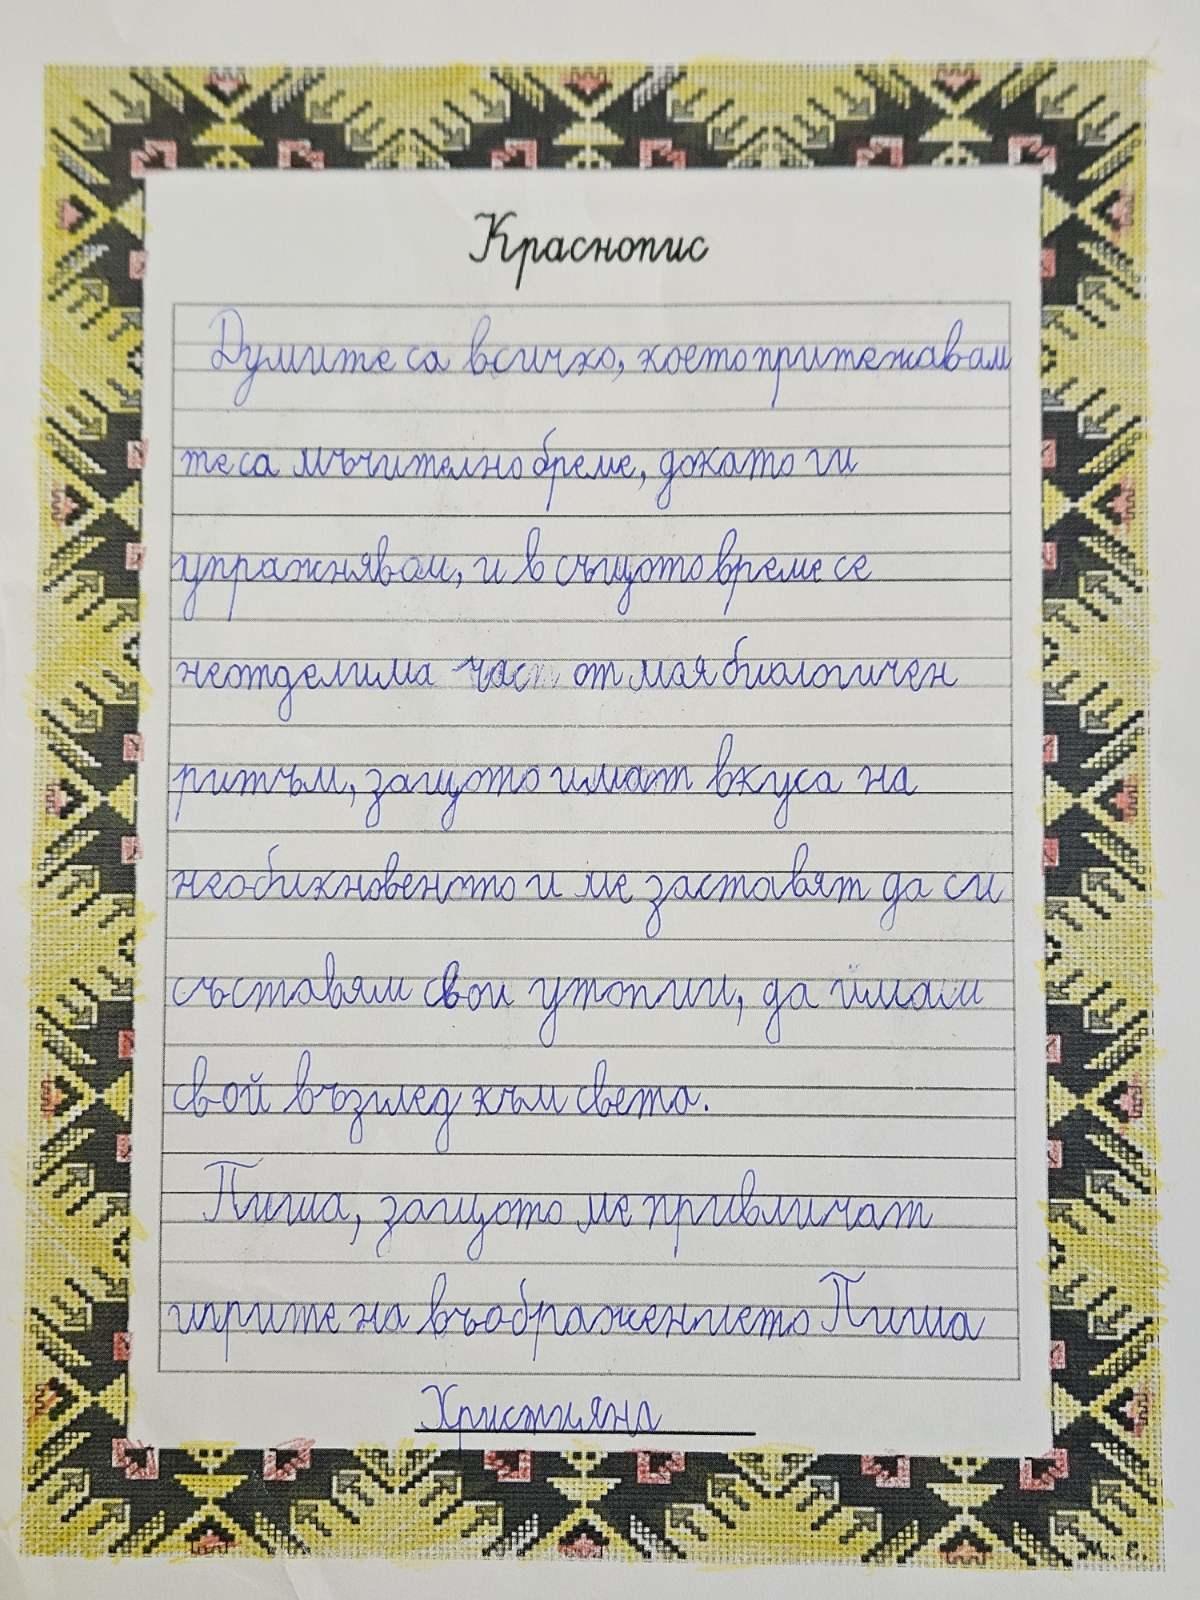 Краснопис
Думите са всичко, което притежавам
те са мъчително бреме, докато ги
упражнявам, и в същото време се
неотделима част от моя биологичен
ритъм, защото имат вкуса на
необикновеното и ме заставят да си
съставям свои утопии, да имам
свой възглед към света.
Пиша, защото ме привличат
игрите на въображението Пиша
Християна
М. С.